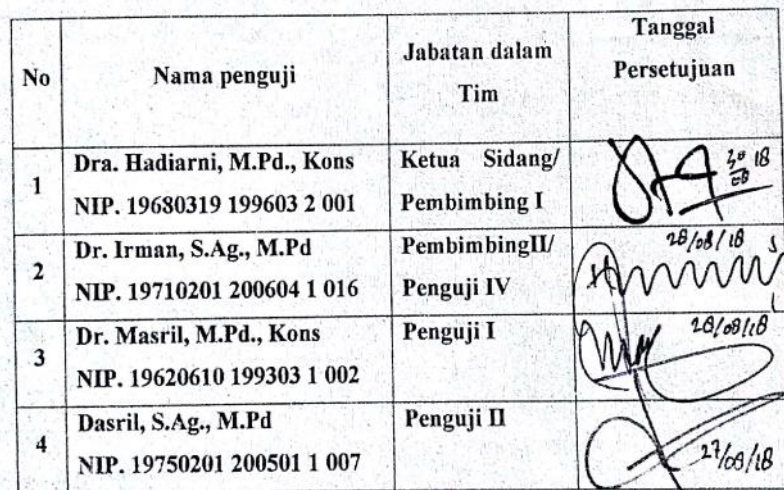 No
Nama penguji
Jabatan dalam
Tim
Tanggal
Persetujuan
1
Dra. Hadiarni, M.Pd., Kons
NIP. 19680319 199603 2 001
Ketua Sidang/
Pembimbing I
30 18
08
2
Dr. Irman, S.Ag., M.Pd
NIP. 19710201 200604 1 016
PembimbingII/
Penguji IV
28/08/18
3
Dr. Masril, M.Pd., Kons
NIP. 19620610 199303 1 002
Penguji I
28/08/18
4
Dasril, S.Ag., M.Pd
NIP. 19750201 200501 1 007
Penguji II
27/08/18